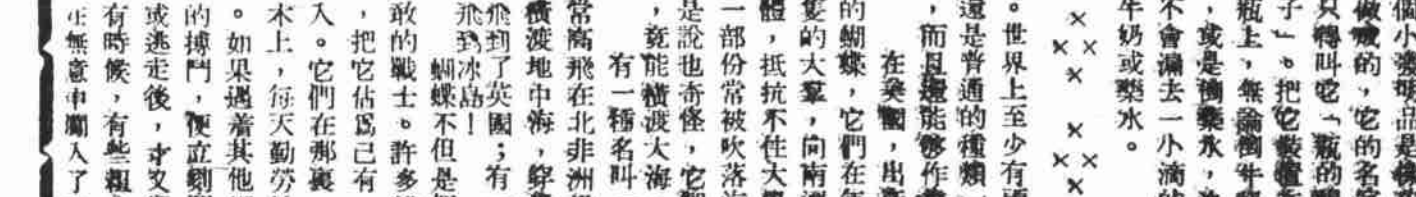 個小發明品是
做成的，它的名
只得叫它「瓶的
子」。把它裝
瓶上，無論倒牛
，或是倒藥水，
不會漏去一小滴
牛奶或藥水。
×
× ×
×
×
× ×
×
。世界上至少有
還是普通的種類
，而且還能夠作
在英國，出
的蝴蝶，它們在
隻的大羣，向南
體，抵抗不住大
一部份常被吹落
是說也奇怪，它
，竟能橫渡大海
有一種名叫
常高飛在北非洲
橫渡地中海，穿
飛到了英國；有
飛到冰島！
蝴蝶不但是
敢的戰士。許多
，把它佔爲己有
入。它們在那裏
木上，每天勤勞
。如果遇着其他
的搏鬥，便立刻
或逃走後，才又
有時候，有些粗
無意中闖入了